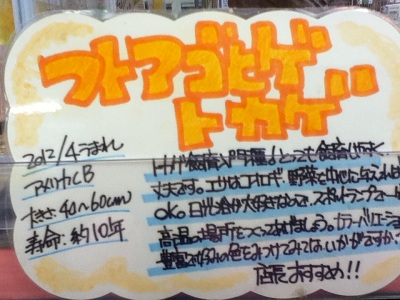 フトアゴヒゲ
トカゲ
2012/4うまれ
アメリカCB
大きさ:40〜60cm
寿命:約10年
トカゲ飼育入門種!とっても飼育しやすく
丈夫です。エサはコオロギ、野菜を中心に与えれば
OK。日光浴が大好きなので、スポットランプで
高温の場所をつくってあげましょう。カラーバリエーションも
豊富で好みの色をみつけてみてはいかがですか?
店長おすすめ!!